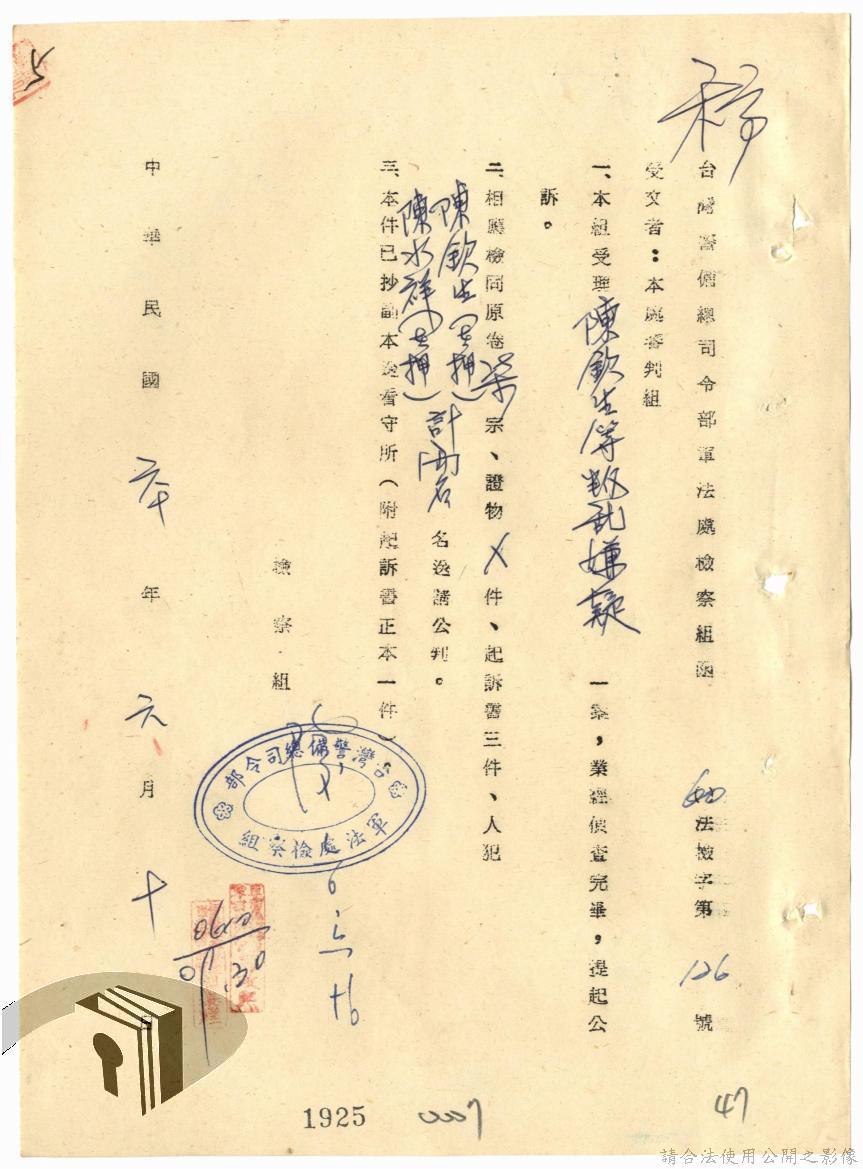 5
稿
台灣警備總司令部軍法處檢察組函
法檢字第126號
受文者：本處審判組
一、本組受理陳欽生等叛亂嫌疑一案，業經偵查完畢，提起公
訴。
二、相應檢同原卷柒宗、證物X件、起訴書三件、人犯
陳欽生（在押）
陳水祥（在押）計兩名
名送請公判。
三、本件已抄副本送看守所（附起訴書正本一件）。
檢察組
台灣警備總司令部
軍法處檢察組
中華民國六十年六月十日
1925
0007
47
請合法使用公開之影像